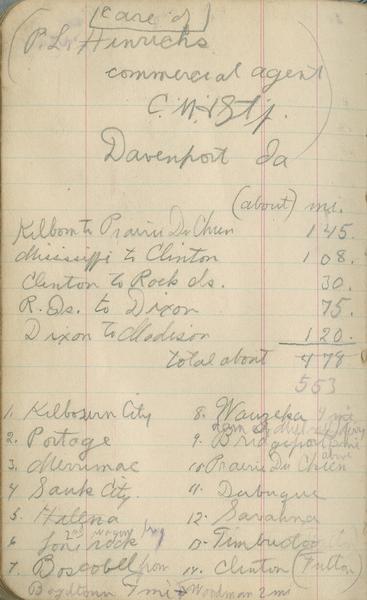 (care of)
(P. L. Hinrichs
commercial agent
C. M. & St. P.
Davenport Ia
(about) mi.
Kilborn to Prairie Du Chien 145.
Mississippi to Clinton 108.
Clinton to Rock Is. 30.
R. Is. to Dixon 75.
Dixon to Madison 120.
total about 478
553
1. Kilbourn City
2. Portage
3. Merrimac
4 Sauk City
5. Helena
6 Lone rock
7. Boscobell from
Boydtown 7 mi & Woodman 2 mi
8. Wauzeka 7 mi
9. Bridgeport
10 Prairie Du Chien
11. Dubuque
12. Savanna
13. Timbuctoo
14. Clinton (Fulton)